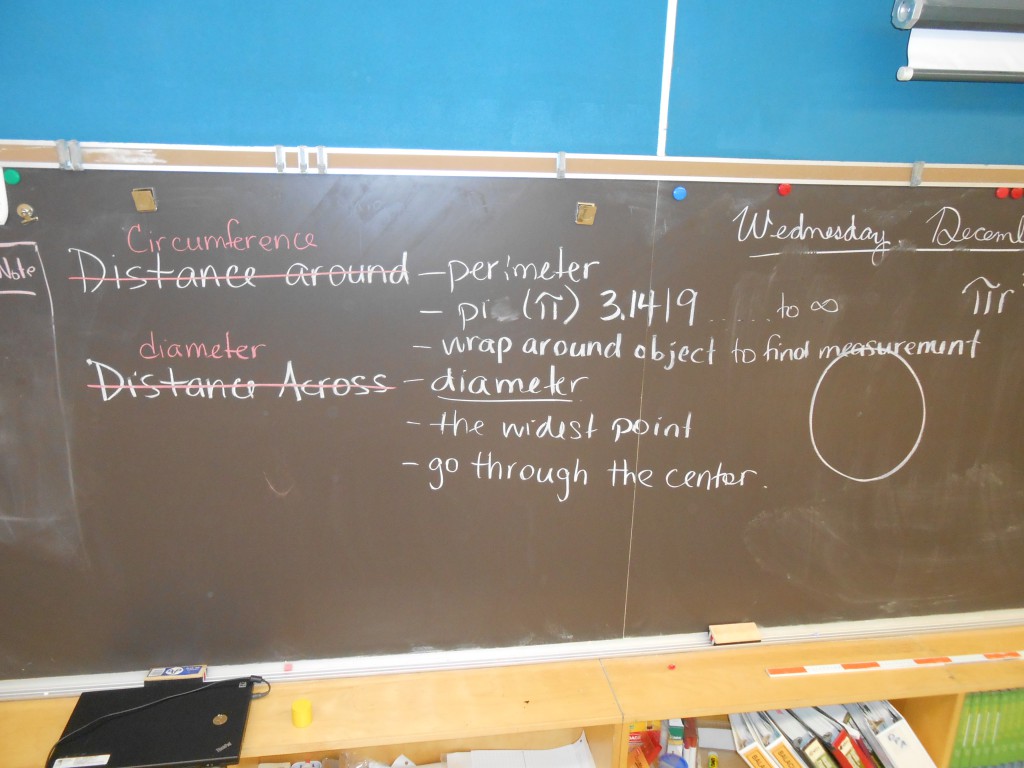 Wednesday, Decemb
Note
Circumference
Distance around – perimeter
– pi (π) 3.1419 ....... to ∞
πr
– wrap around object to find measurement
diameter
Distance Across – diameter
– the widest point
– go through the center.
ThinkPad